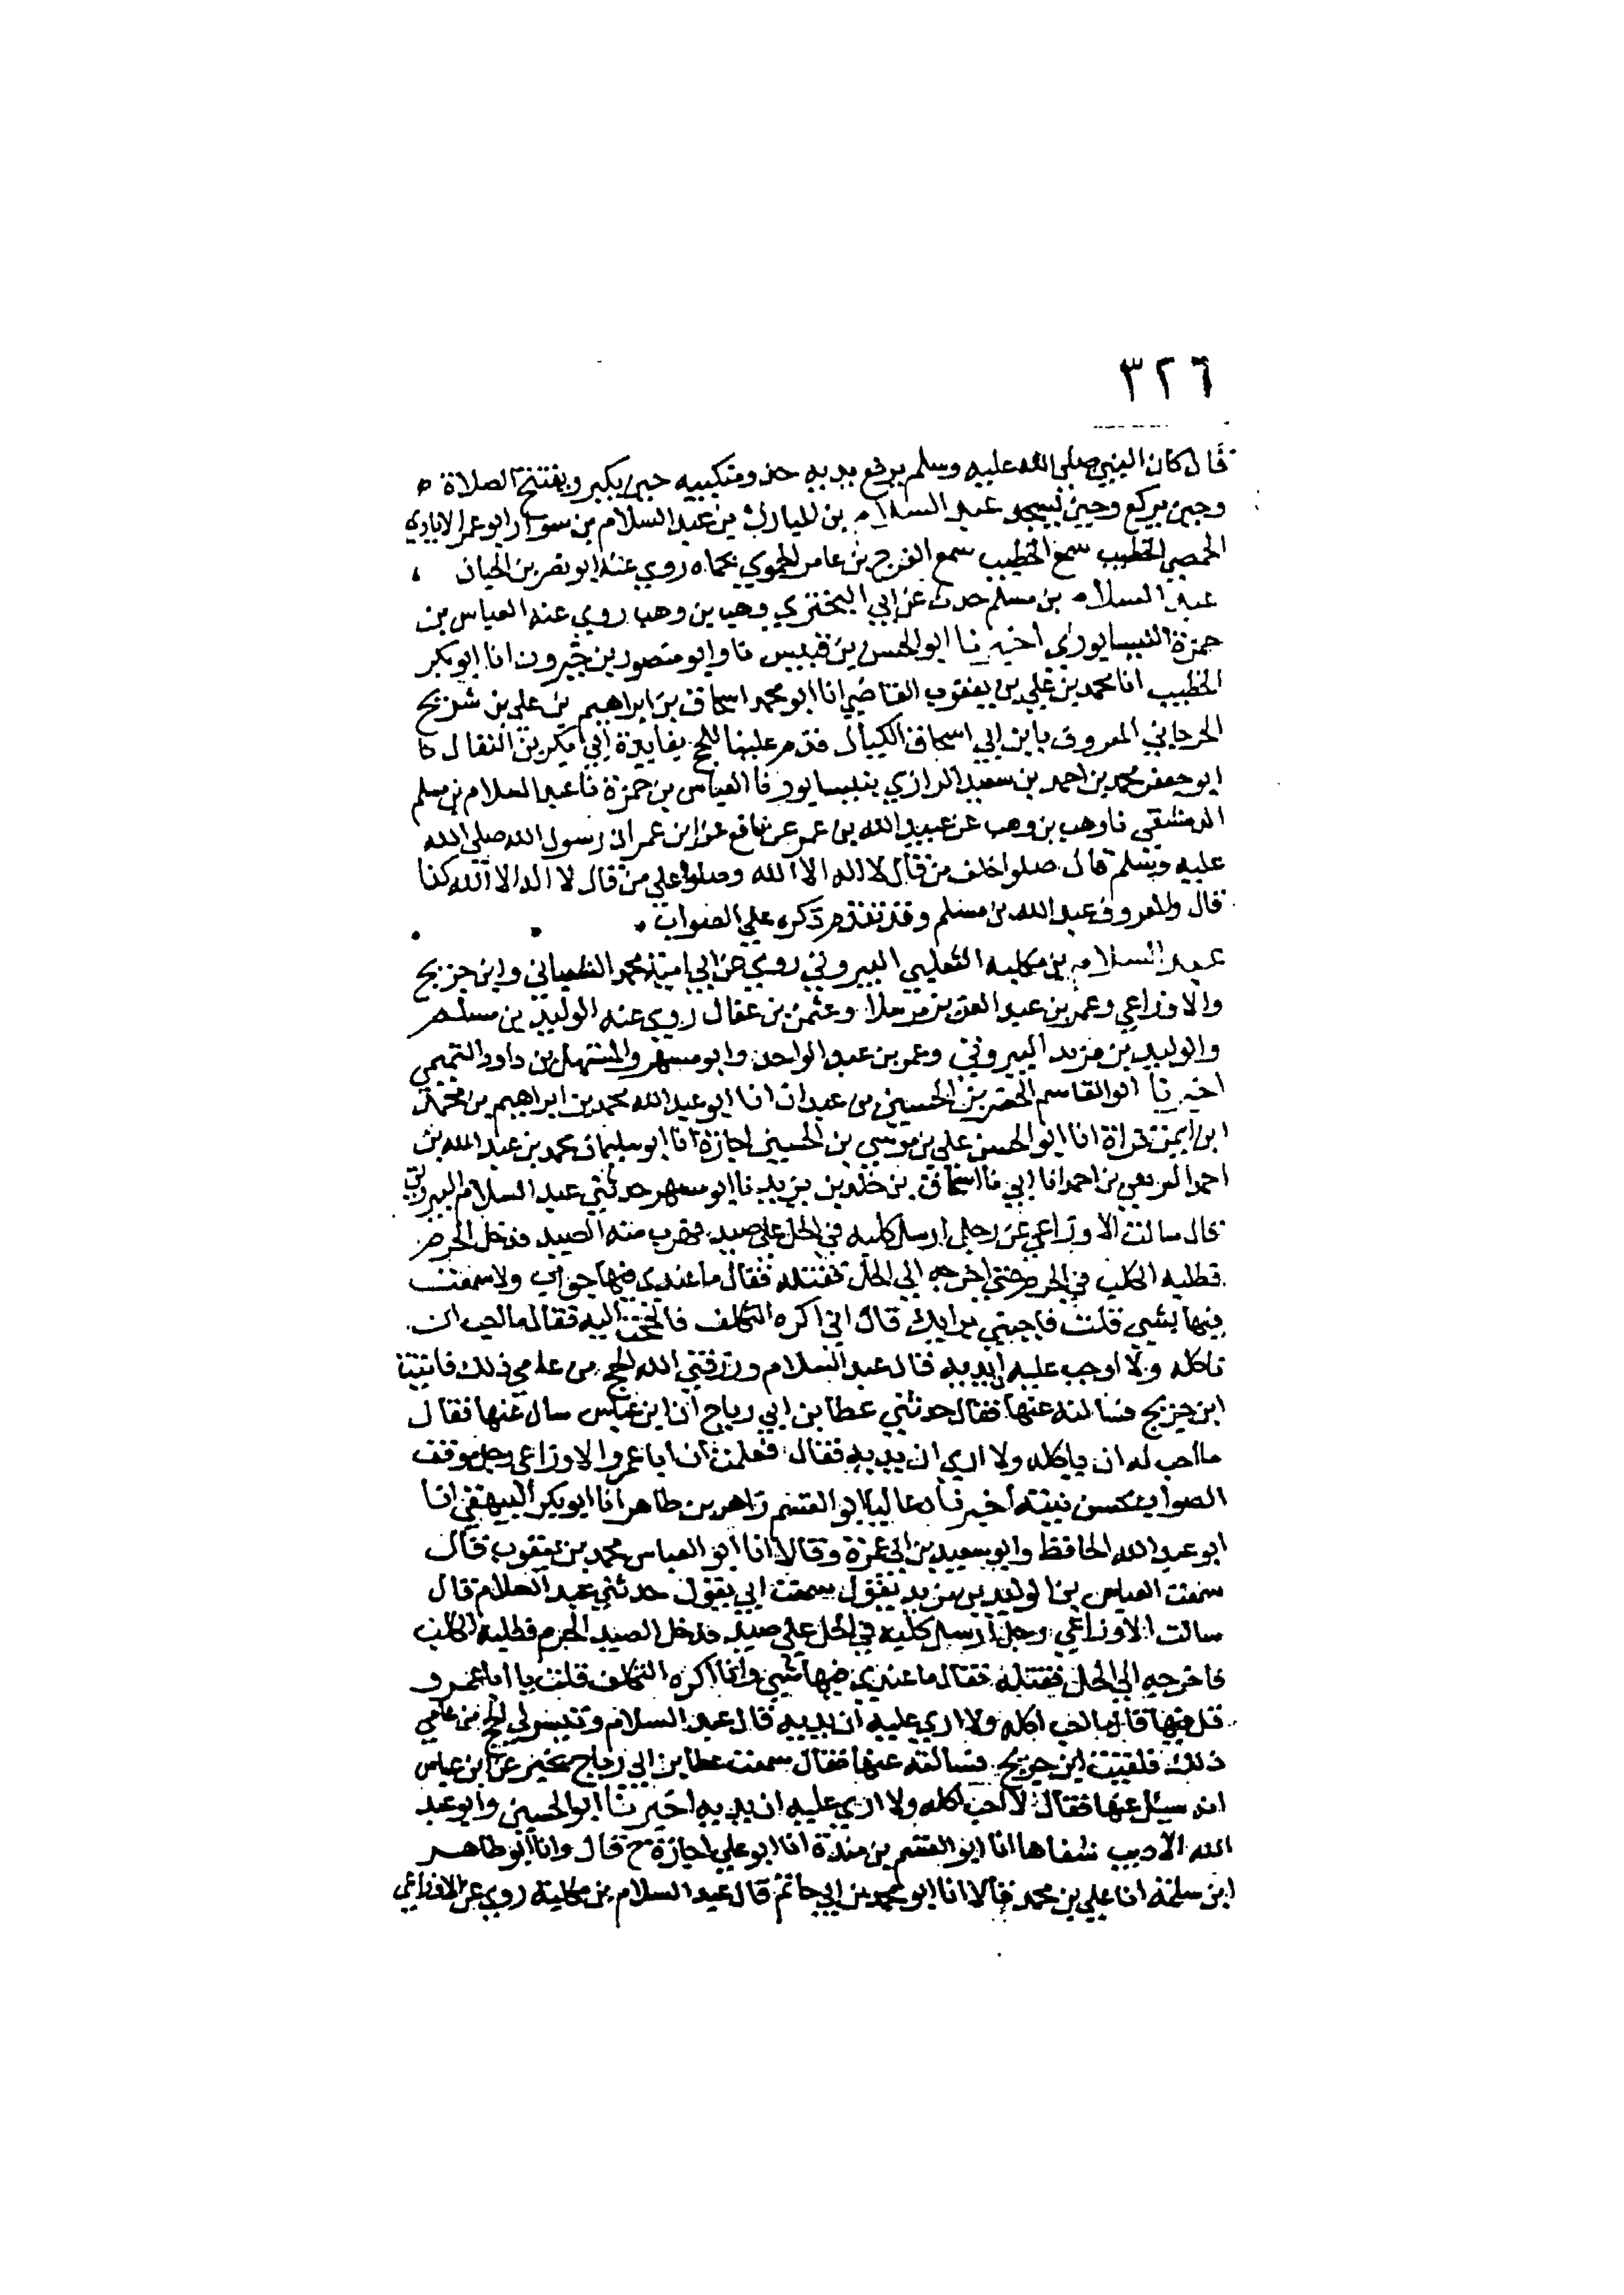 ٣٢٦
قال كان النبي صلى الله عليه وسلم يرفع يديه حذو منكبيه حين يكبر ويفتتح الصلاة
وحين يركع وحين يسجد عبد السلام بن المبارك بن عبد السلام بن سوار ابو عمر الايادي
الحمصي الخطيب سمع الخطيب سمع الفرج بن عامر الحموي بحماه روي عنه ابو نصر بن الجبان
عبد السلام بن مسلم حدث عن ابي البختري وهب بن وهب روي عنه العباس بن
حمزة النيسابوري اخبرنا ابو الحسن بن قبيس نا وابو منصور بن خيرون انا ابو بكر
الخطيب انا محمد بن علي بن يعقوب القاضي انا ابو محمد اسحاق بن ابراهيم بن علي بن شريح
الجرجاني المعروف بابن ابي اسحاق الكيال قدم علينا للحج بفايدة ابي بكر بن البقال نا
ابو جعفر محمد بن احمد بن سعيد الرازي بنيسابور نا العباس بن حمزة نا عبد السلام بن مسلم
الدمشقي نا وهب بن وهب عن عبيد الله بن عمر عن نافع عن ابن عمر ان رسول الله صلى الله
عليه وسلم قال صلوا خلف من قال لا اله الا الله وصلوا علي من قال لا اله الا الله كذا
قال والمعروف عبد الله بن مسلم وقد تقدم ذكره علي الصواب
عبد السلام بن مكلبه الثعلبي البيروتي روي عن ابي امية محمد الشعباني وابن جريج
والاوزاعي وعمر بن عبد العزيز مرسلا وعثمن بن عفال روي عنه الوليد بن مسلم
والوليد بن مزيد البيروتي وعمر بن عبد الواحد وابو مسهر والمستهل بن داود التميمي
اخبرنا ابو القاسم الخضر بن الحسين بن عبدان انا ابو عبد الله محمد بن ابراهيم بن محمد
ابن ايمن قراة انا ابو الحسن علي بن موسي بن الحسين اجازة انا ابو سليمان محمد بن عبد الله بن
احمد الربعي بن احمد انا ابي نا اسحاق بن خلد بن يزيد نا ابو مسهر حدثني عبد السلام البيروتي
قال سالت الاوزاعي عن رجل ارسل كلبه في الحل علي صيد فهرب منه الصيد فدخل الحرم
فطلبه الكلب في الحرم حتي اخرجه الي الحل فقتله فقال ما عندي فيها جواب ولا سمعت
فيها بشي قلت فاجبني برايك قال اني اكره التكلف فالححت اليه فقال ما احب ان
تاكله ولا اوجب عليه ان يديه قال عبد السلام ورزقني الله الحج من عامي ذلك فاتيت
ابن جريج فسالته عنها فقال حدثني عطا بن ابي رباح ان ابن عباس سال عنها فقال
ما احب له ان ياكله ولا اري ان يديه فقال فعلمت ان ابا عمرو الاوزاعي رجل موقف
الصواب بحسن نيته اخبرناه عاليا ابو القسم زاهر بن طاهر انا ابو بكر البيهقي انا
ابو عبد الله الحافظ وابو سعيد بن ابي عمرة وقالا انا ابو العباس محمد بن يعقوب قال
سمعت العباس بن الوليد بن مزيد يقول سمعت ابي يقول حدثني عبد السلام قال
سالت الاوزاعي رجل ارسل كلبه في الحل علي صيد فدخل الصيد الحرم فطلبه الكلب
فاخرجه الي الحل فقتله فقال ما عندي فيها شي وانا اكره التكلف قلت يا ابا عمرو
قل فيها قال ما احب اكله ولا اري عليه ان يديه قال عبد السلام وتيسر لي الحج من عامي
ذلك فلقيت ابن جريج فسالته عنها فقال سمعت عطا بن ابي رباح يخبر عن ابن عباس
انه سيئل عنها فقال لا احب اكله ولا اري عليه ان يديه اخبرنا ابو الحسين وابو عبد
الله الاديب شفاها انا ابو القسم بن مندة انا ابو علي اجازة ح قال وانا ابو طاهر
ابن سلمة انا علي بن محمد قالا انا ابو محمد بن ابي حاتم قال عبد السلام بن مكلبة روي عن الاوزاعي